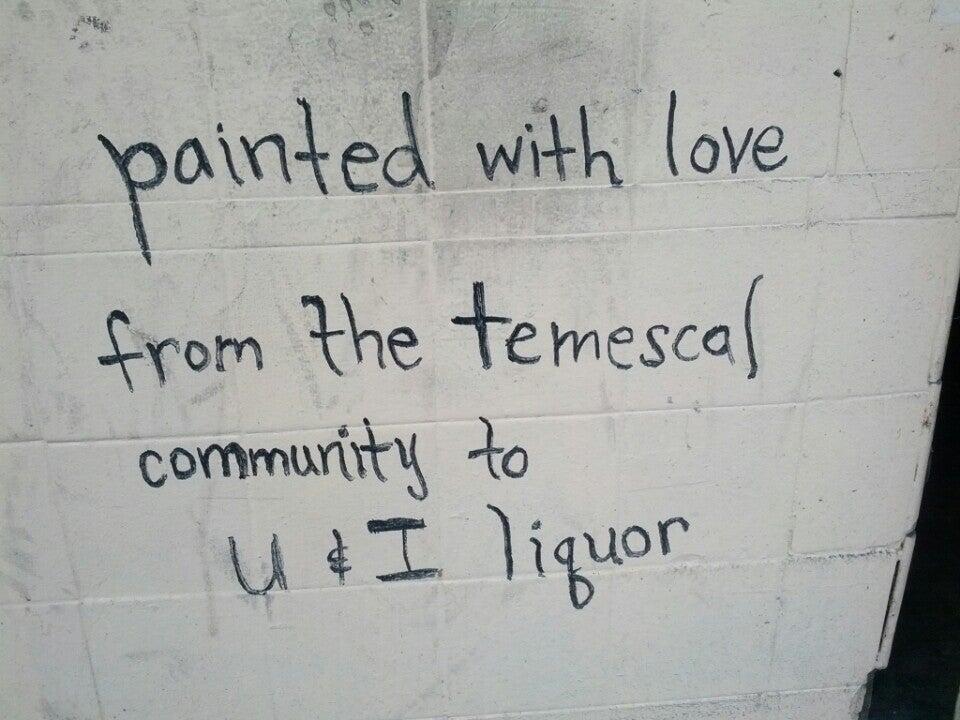 painted with love
from the temescal
community to
U & I liquor